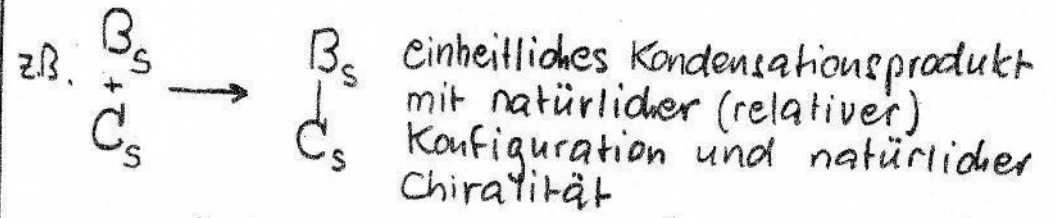 z.B. Bs + Cs → Bs
|
Cs
einheitliches Kondensationsprodukt
mit natürlicher (relativer)
Konfiguration und natürlicher
Chiralität